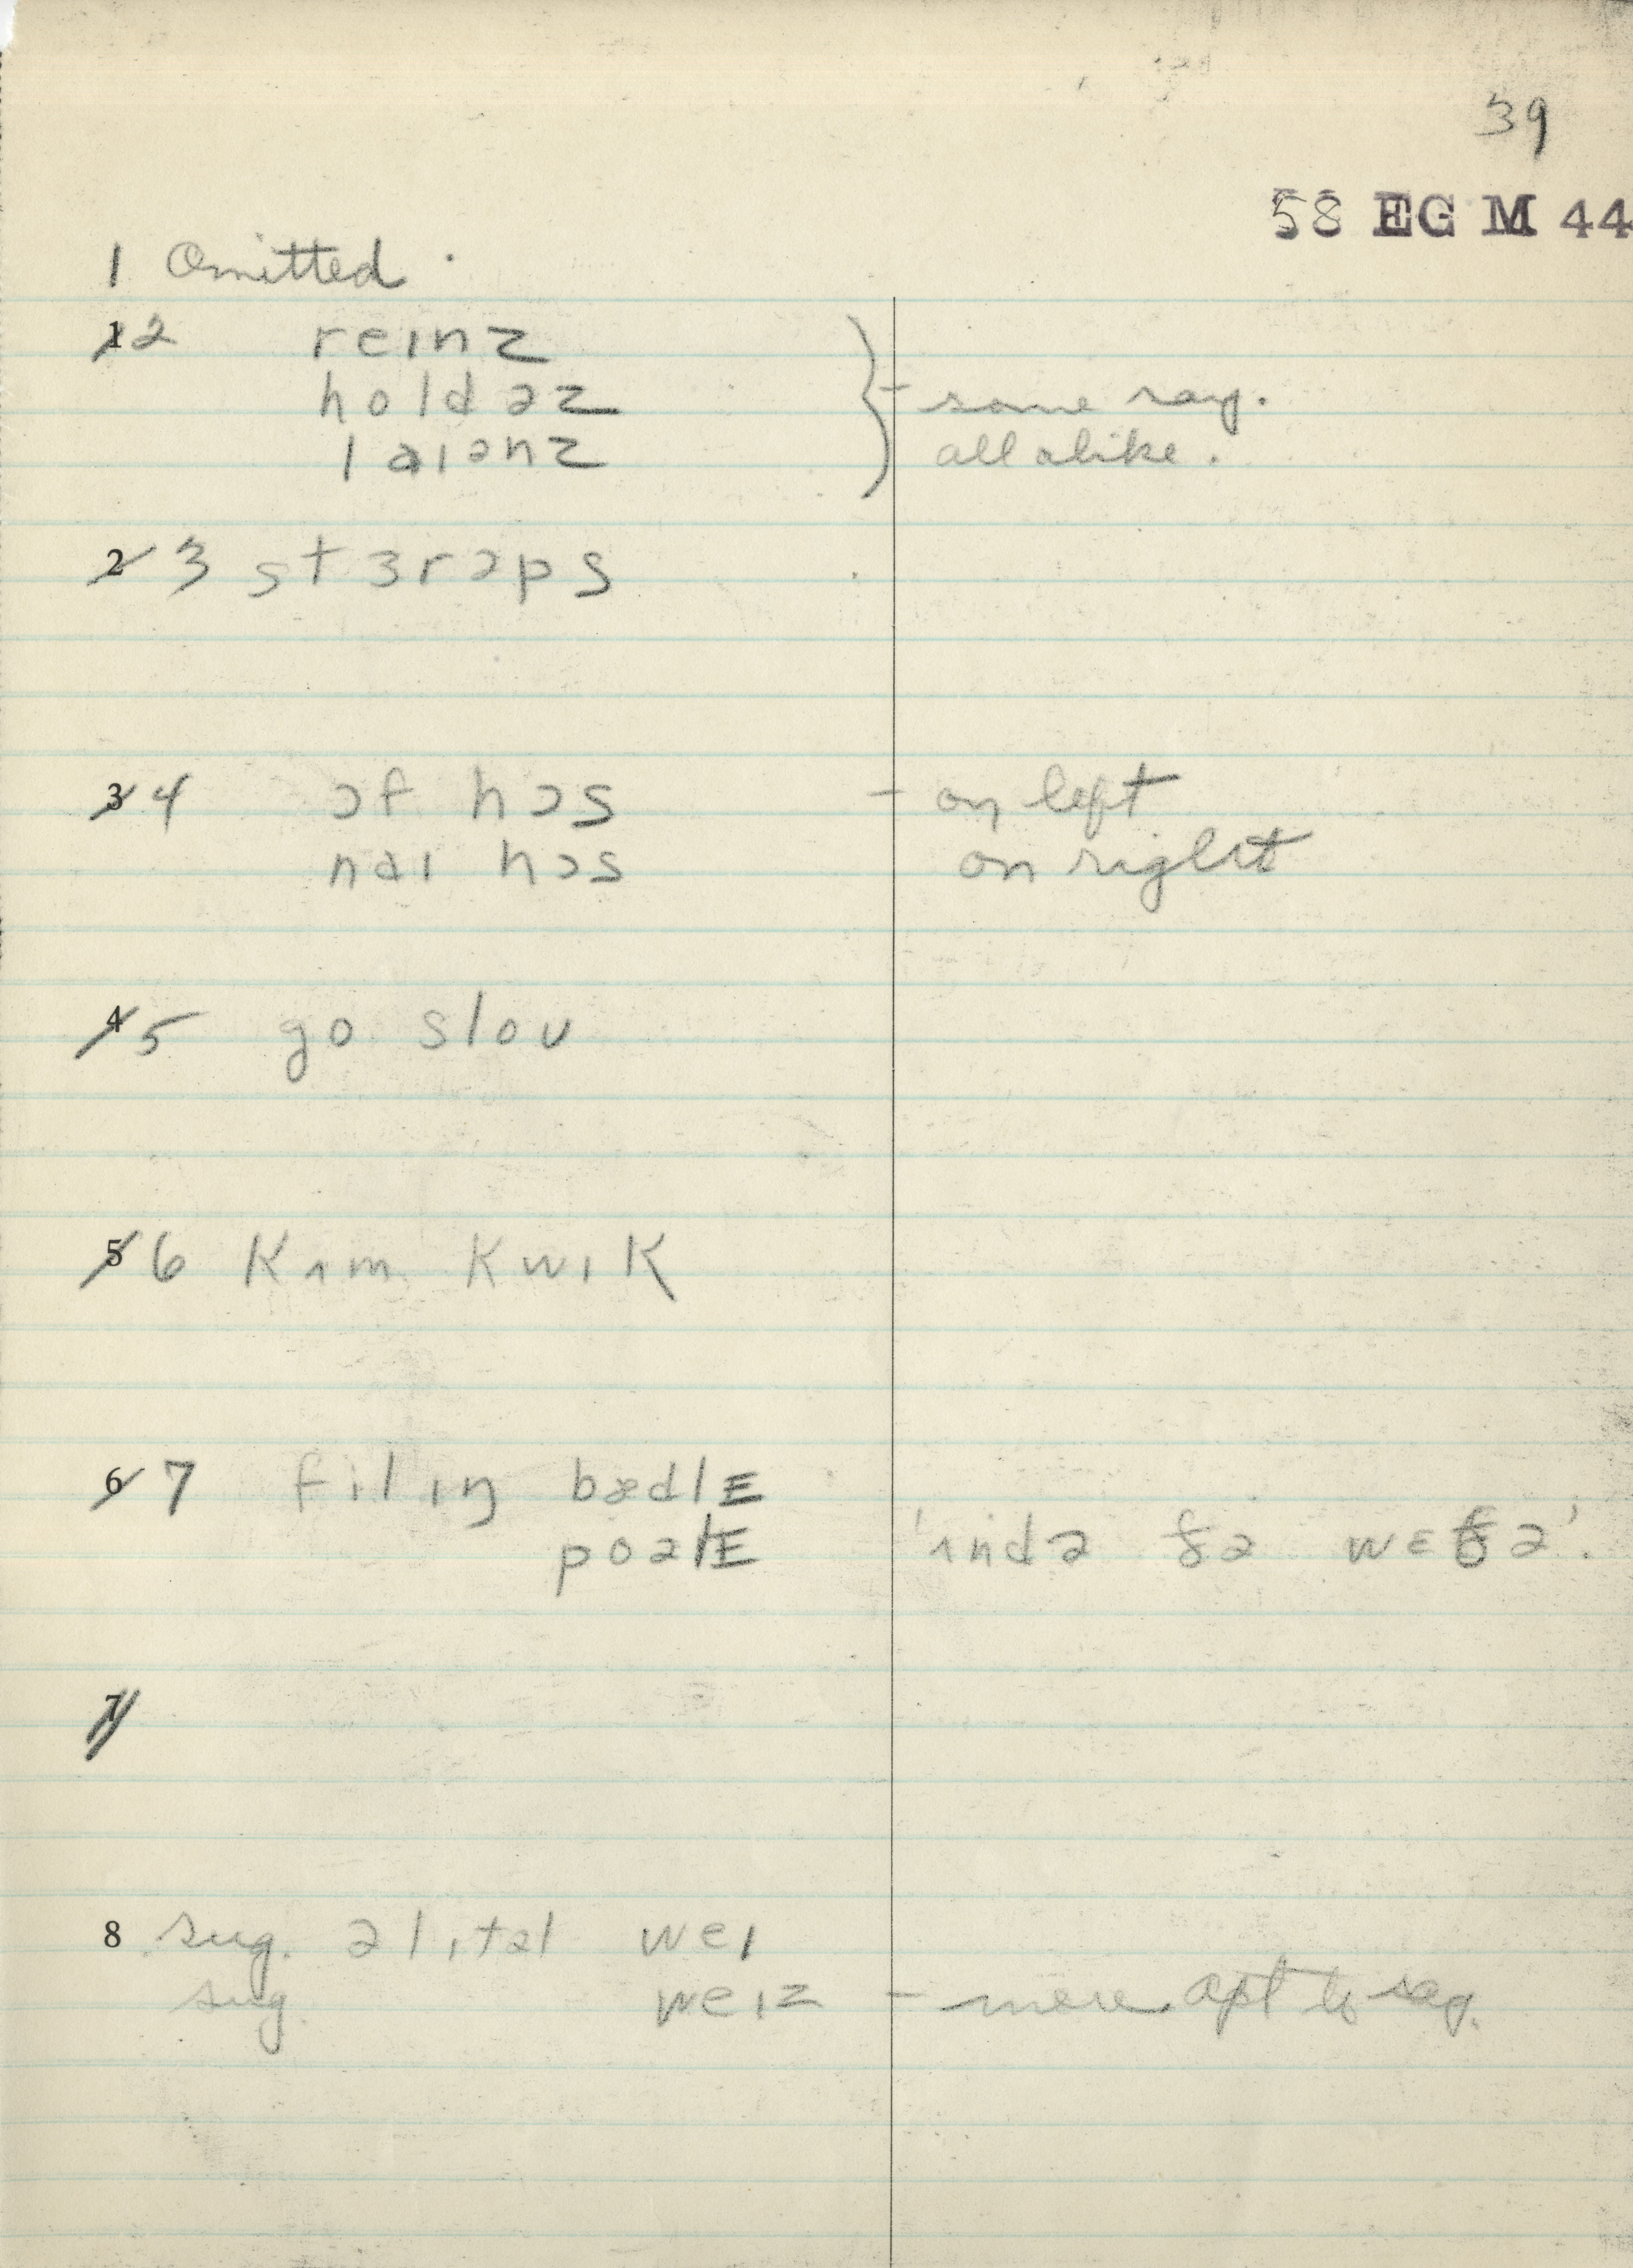 39
58 EG M 44
1 Omitted.
1 2 reɪnz
holdəz } - some say.
laɪənz all alike.
2 3 stɜrəps
3 4 ɔf hɔs - on left
naɪ hɔs on right
4 5 go sloʊ
5 6 kʌm kwɪk
6 7 filɪŋ bædlE
poəlE 'ʌndə ðə wɛðə'.
7
8 sug. ə lɪtəl weɪ
sug. weɪz - more apt to say.